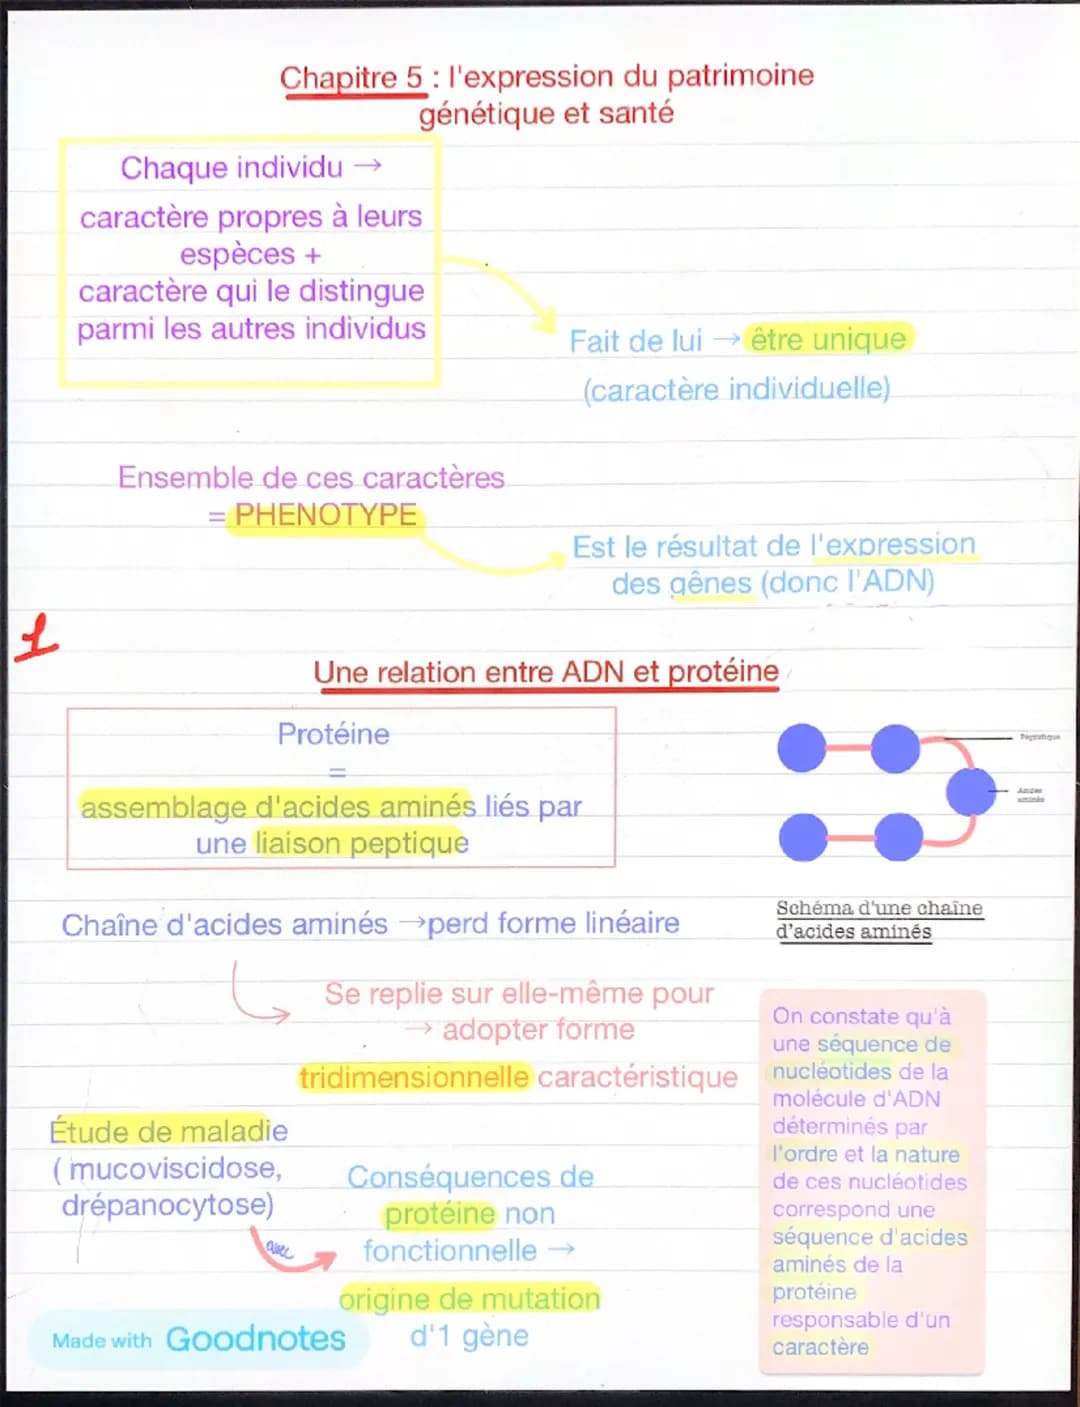 Chapitre 5 : l'expression du patrimoine
génétique et santé
Chaque individu →
caractère propres à leurs
espèces +
caractère qui le distingue
parmi les autres individus
Fait de lui → être unique
(caractère individuelle)
Ensemble de ces caractères
= PHENOTYPE
Est le résultat de l'expression
des gênes (donc l'ADN)
1
Une relation entre ADN et protéine
Protéine
=
assemblage d'acides aminés liés par
une liaison peptique
Peptidique
Acides
aminés
Schéma d'une chaîne
d'acides aminés
Chaîne d'acides aminés →perd forme linéaire
Se replie sur elle-même pour
→ adopter forme
tridimensionnelle caractéristique
On constate qu'à
une séquence de
nucléotides de la
molécule d'ADN
déterminés par
l'ordre et la nature
de ces nucléotides
correspond une
séquence d'acides
aminés de la
protéine
responsable d'un
caractère
Étude de maladie
( mucoviscidose,
drépanocytose)
avec
Conséquences de
protéine non
fonctionnelle →
origine de mutation
d'1 gène
Made with Goodnotes